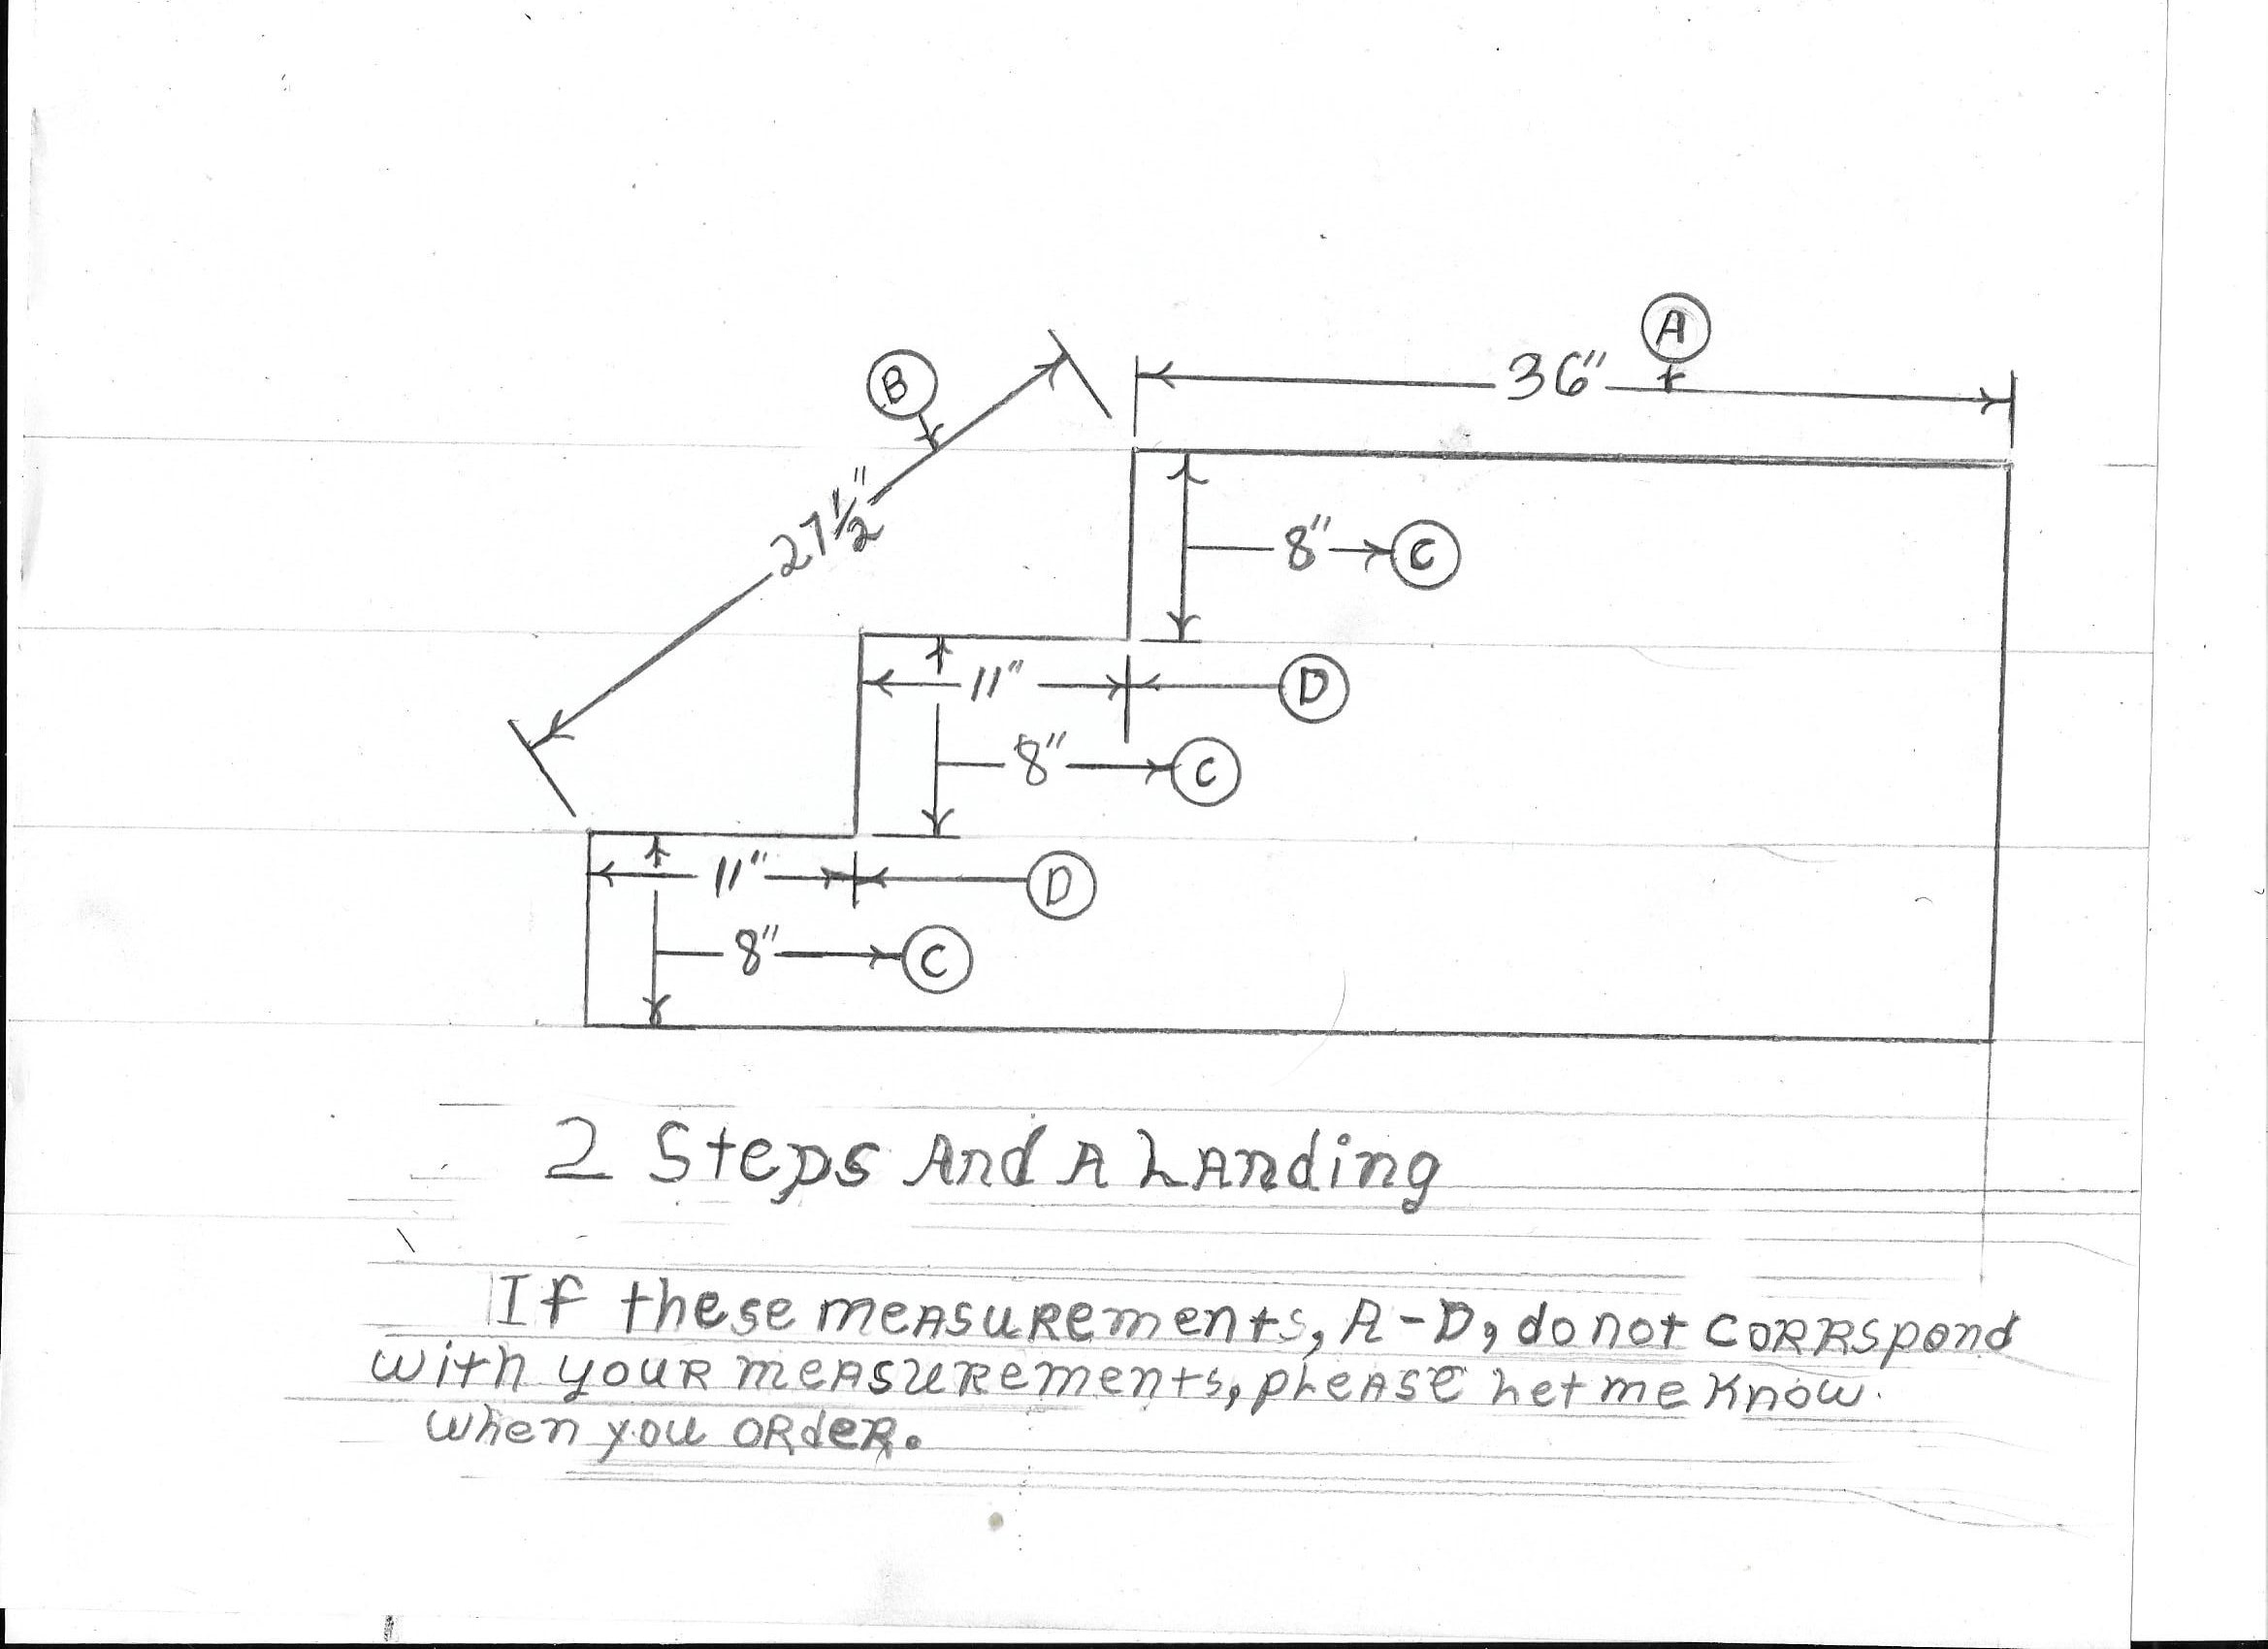 A
36"
B
27 1/2"
8"
C
11"
D
8"
C
11"
D
8"
C
2 Steps And A Landing
If these measurements, A-D, do not corrspond
with your measurements, please let me know
when you order.